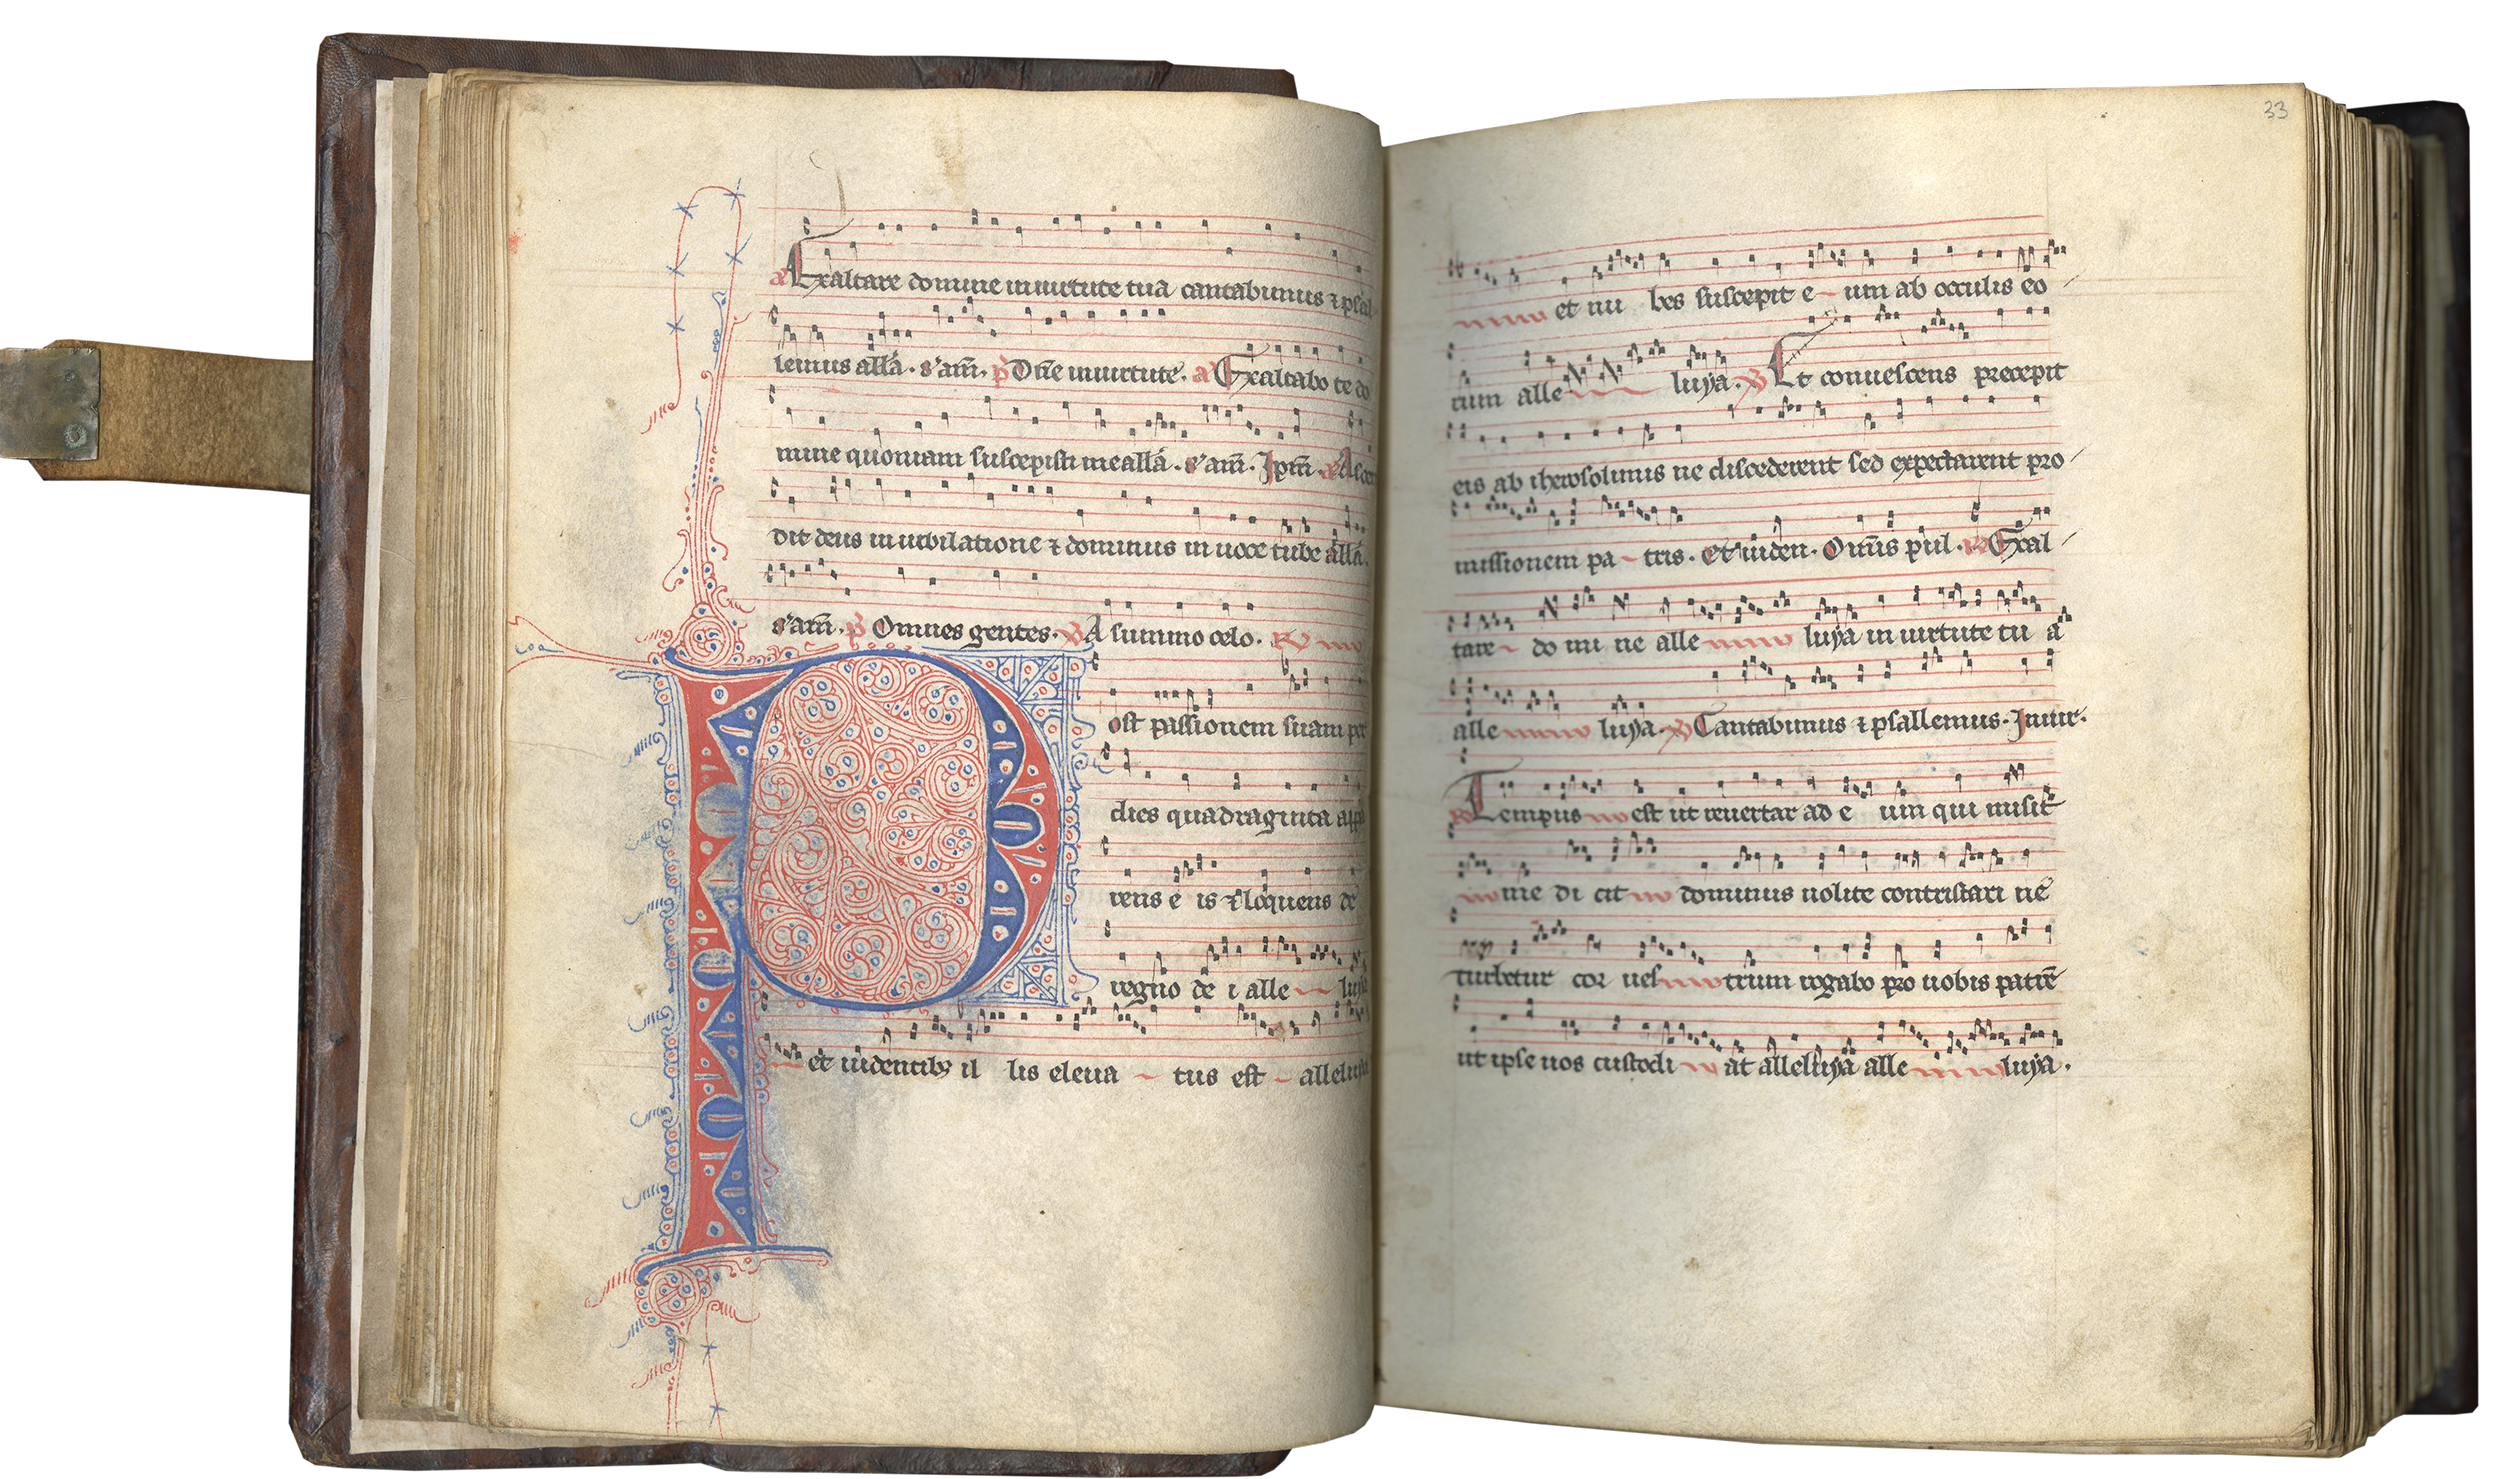 a Exaltare domine in uirtute tua cantabimus ⁊ psal
lemus all'a. s'am̄. p̄ Dn̄e in uirtute. a Exaltabo te do
mine quoniam suscepisti me all'a. s'am̄. Ip̄m̄. a Ascen
dit deus in iubilatione ⁊ dominus in uoce tube all'a.
s'am̄. p̄ Omnes gentes. ꝟ A summo celo. ꝶ
Post passionem suam per
dies quadraginta appa
rens e is ⁊ loquens de
regno de i alle luya
et uidentibꝫ il lis eleua tus est alleluya
33
et nu bes suscepit e um ab occulis eo
rum alle luya. ꝟ Et conuescens precepit
eis ab iherosolimis ne discederent sed expectarent pro
missionem pa tris. Et uiden. Omīs pul. ꝶ Exal
tare do mi ne alle luya in uirtute tu a
alle luya. ꝟ Cantabimus ⁊ psallemus. In uir.
ꝶ Tempus est ut reuertar ad e um qui misit
me di cit dominus nolite contristari ne
turbetur cor ues trum rogabo pro uobis patrē
ut ipse uos custodi at alleluya alle luya.